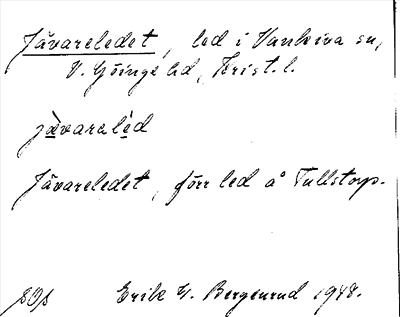 Jävareledet, led i Vankiva sn,
V. Göinge hd, Krist. l.
jä̀varalèd
Jävareledet, förr led å Tullstorp.
Erik G. Bergenrud 1948.